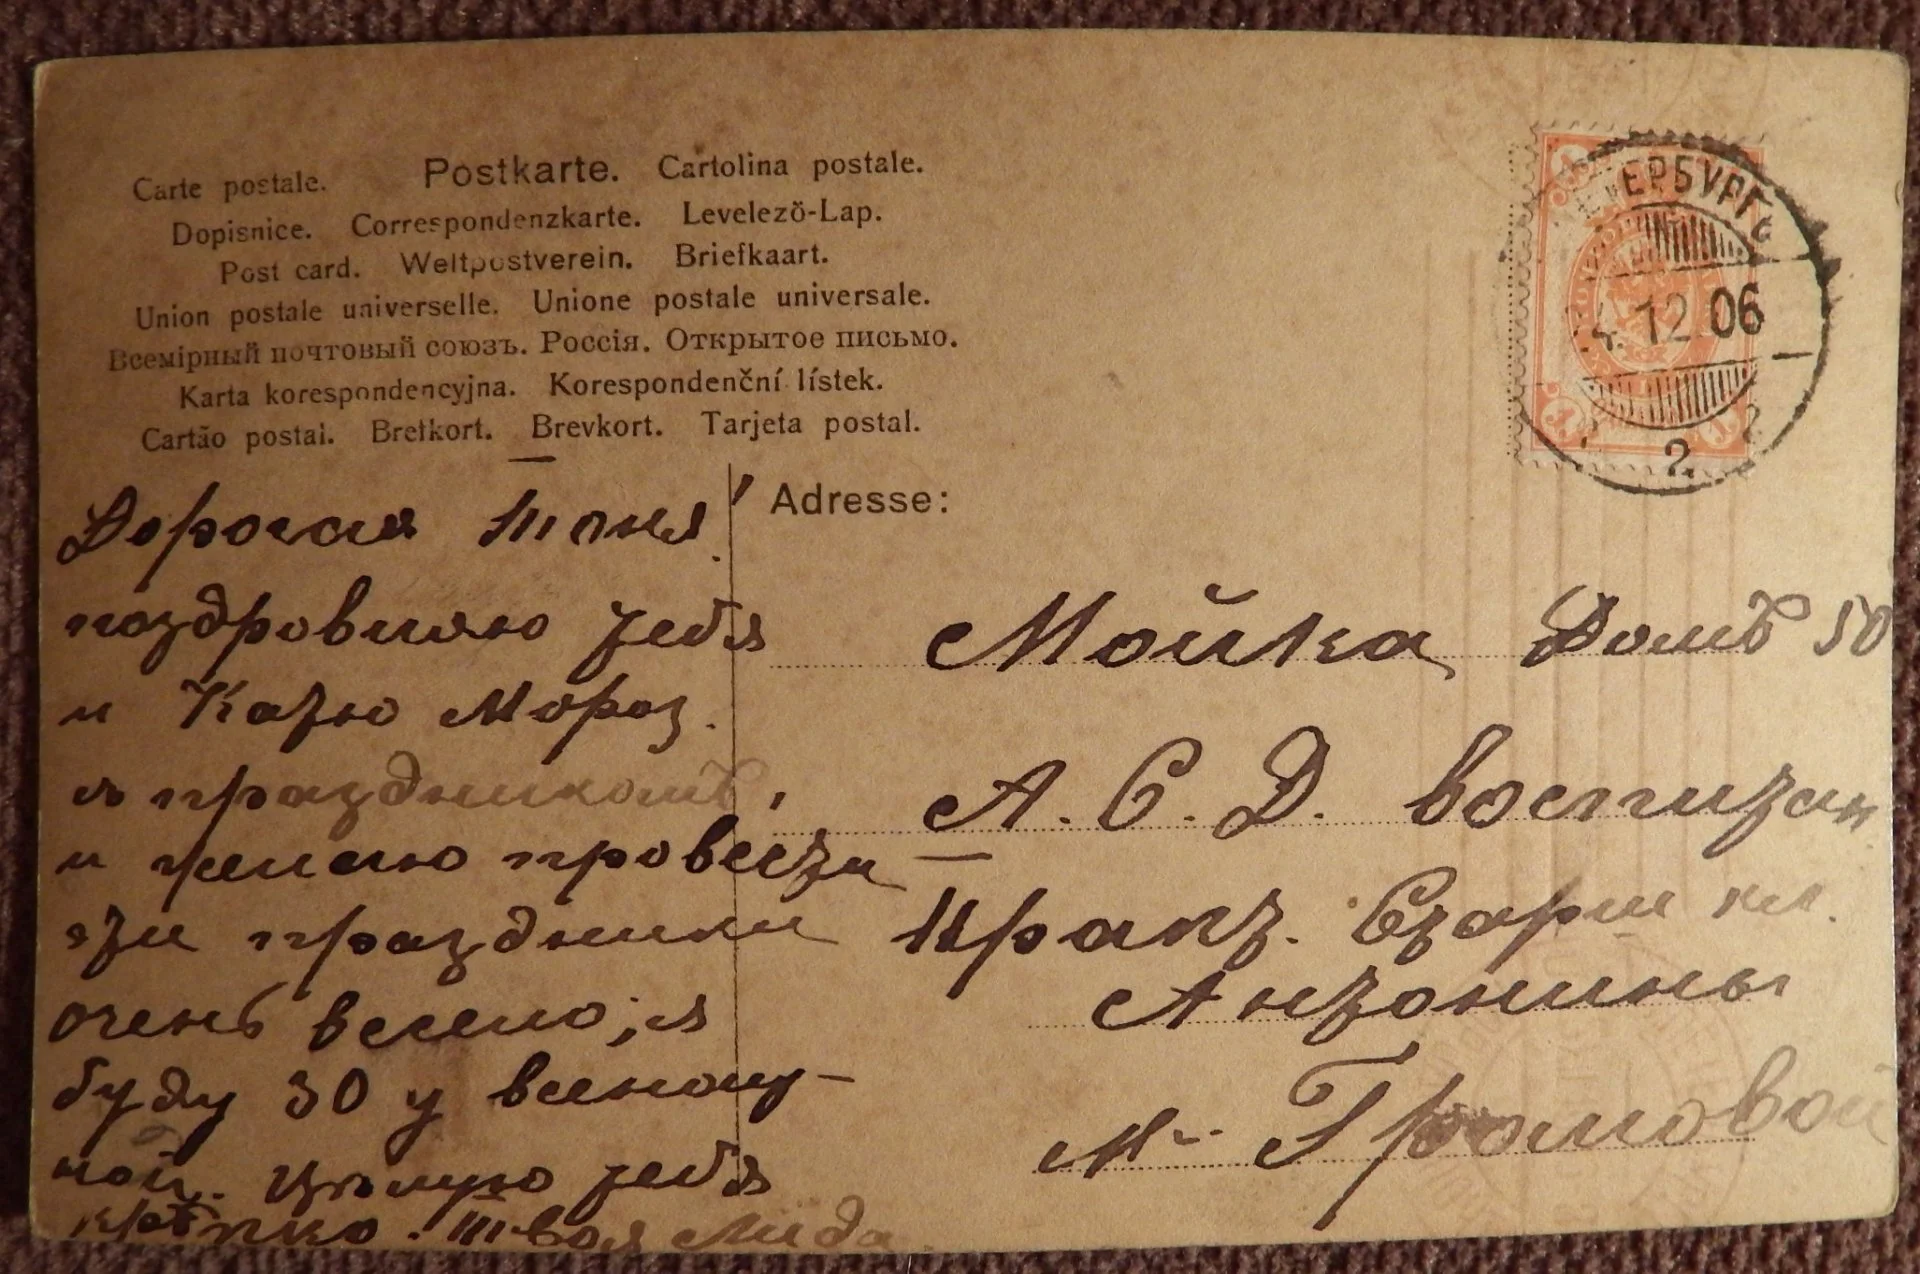 Carte postale. Postkarte. Cartolina postale.
Dopisnice. Correspondenzkarte. Levelezö-Lap.
Post card. Weltpostverein. Briefkaart.
Union postale universelle. Unione postale universale.
Всемірный почтовый союзъ. Россія. Открытое письмо.
Karta korespondencyjna. Korespondenční lístek.
Cartão postal. Brefkort. Brevkort. Tarjeta postal.
ЕРБУРГ
4.12.06
2
Дорогая Тоня!
поздравляю тебя
и Катю Мороз.
съ праздникомъ,
и желаю провести
эти праздники
очень весело; я
буду 30 у
ной. Цѣлую тебя
крѣпко. Твоя Лида.
Adresse:
Мойка Домъ 50
А. С. Д. воспитан
Старш кл.
Антонины
Громовой